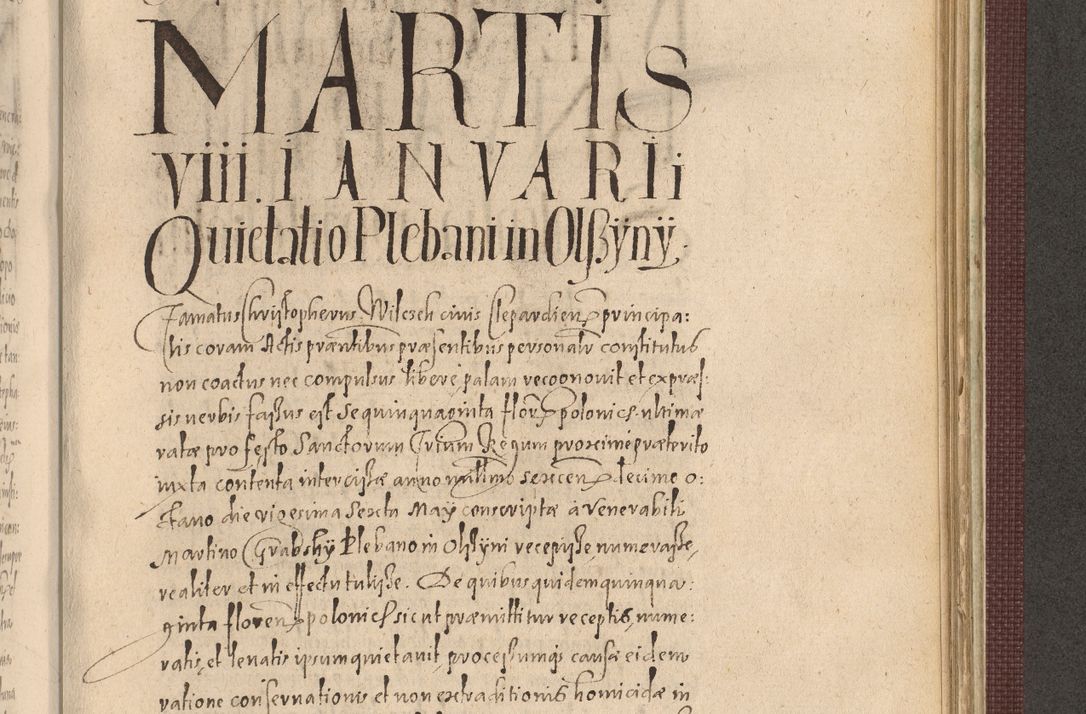 MARTIS
VIII. IANVARII
Quietatio Plebani in Olßÿnÿ.
Famatus Christopherus Wilczek civis Clepardien principa:
lis coram Actis præsentibus personalr constitutus
non coactus nec compulsus libere palam recognovit et expræs:
sis verbis fassus est se quinquaginta flor polonics ultimæ
ratæ pro festo Sanctorum Trium Regum proxime præterito
iuxta contenta intercisæ anno millimo sexcen decimo o:
ctavo die vigesima sexta Maÿ conscriptæ à Venerabili
Martino Grabskÿ Plebano in Olssÿni recepisse, numerasse,
realiter et in effectu tulisse. De quibus quidem quinqua:
ginta floren polonics sicut præmittitur receptis, nume:
ratis, et levatis ipsum quietavit, processumqs causæ eidem
ratione consernationis et non extraditionis homicidæ in